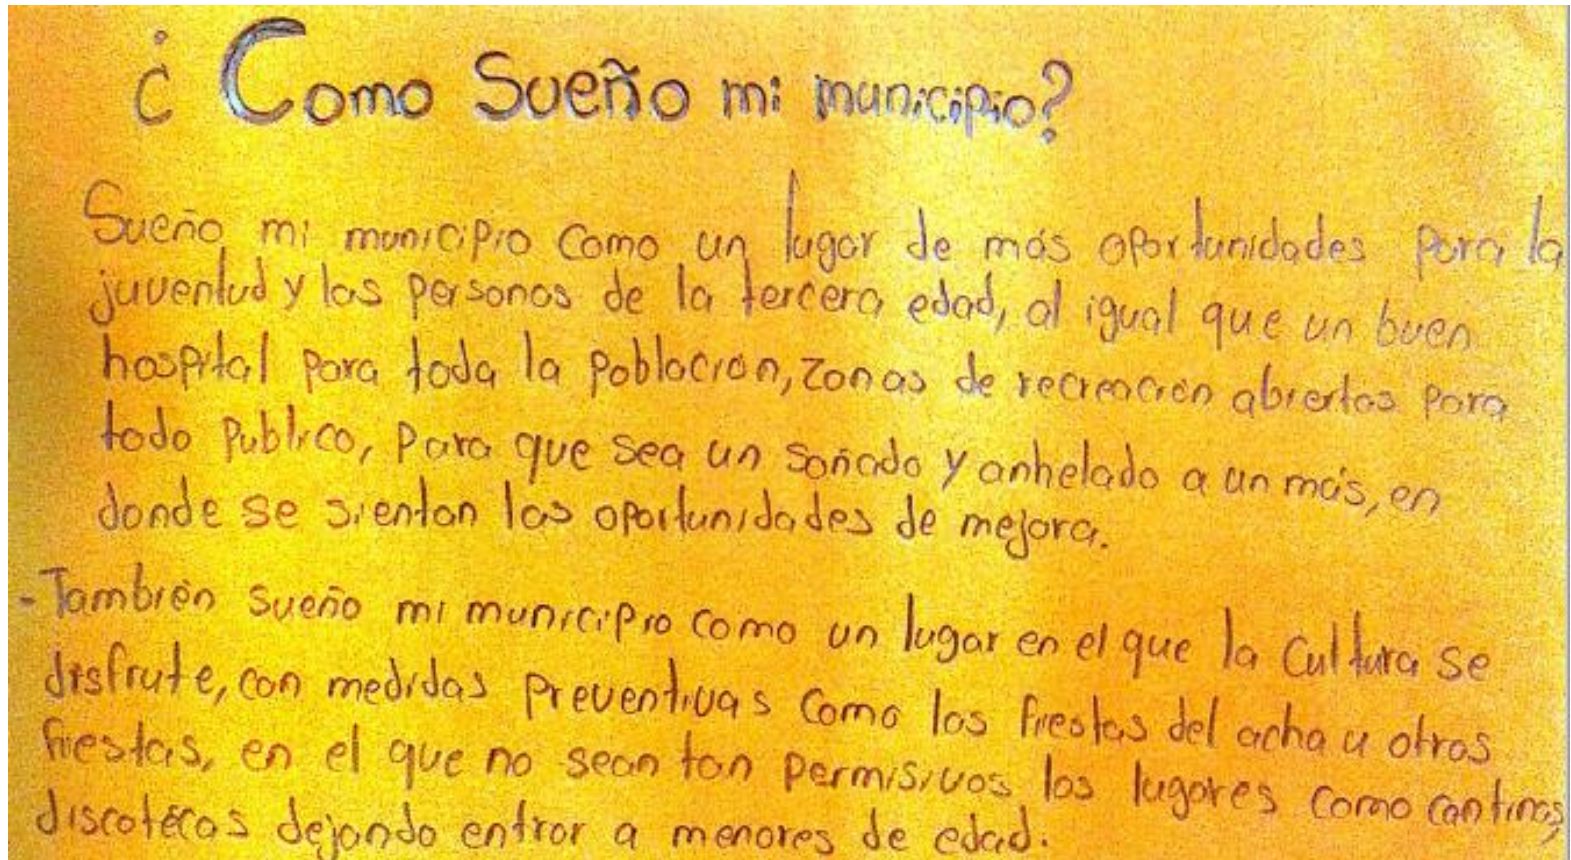 ¿Como Sueño mi municipio?
Sueño mi municipio como un lugar de más oportunidades para la
juventud y las personas de la tercera edad, al igual que un buen
hospital para toda la población, zonas de recreación abiertas para
todo publico, para que sea un soñado y anhelado a un más, en
donde se sientan las oportunidades de mejora.
-También sueño mi municipio como un lugar en el que la cultura se
disfrute, con medidas preventivas como las fiestas del acha u otras
fiestas, en el que no sean tan permisivos los lugares como cantinas,
discotécas dejando entrar a menores de edad.